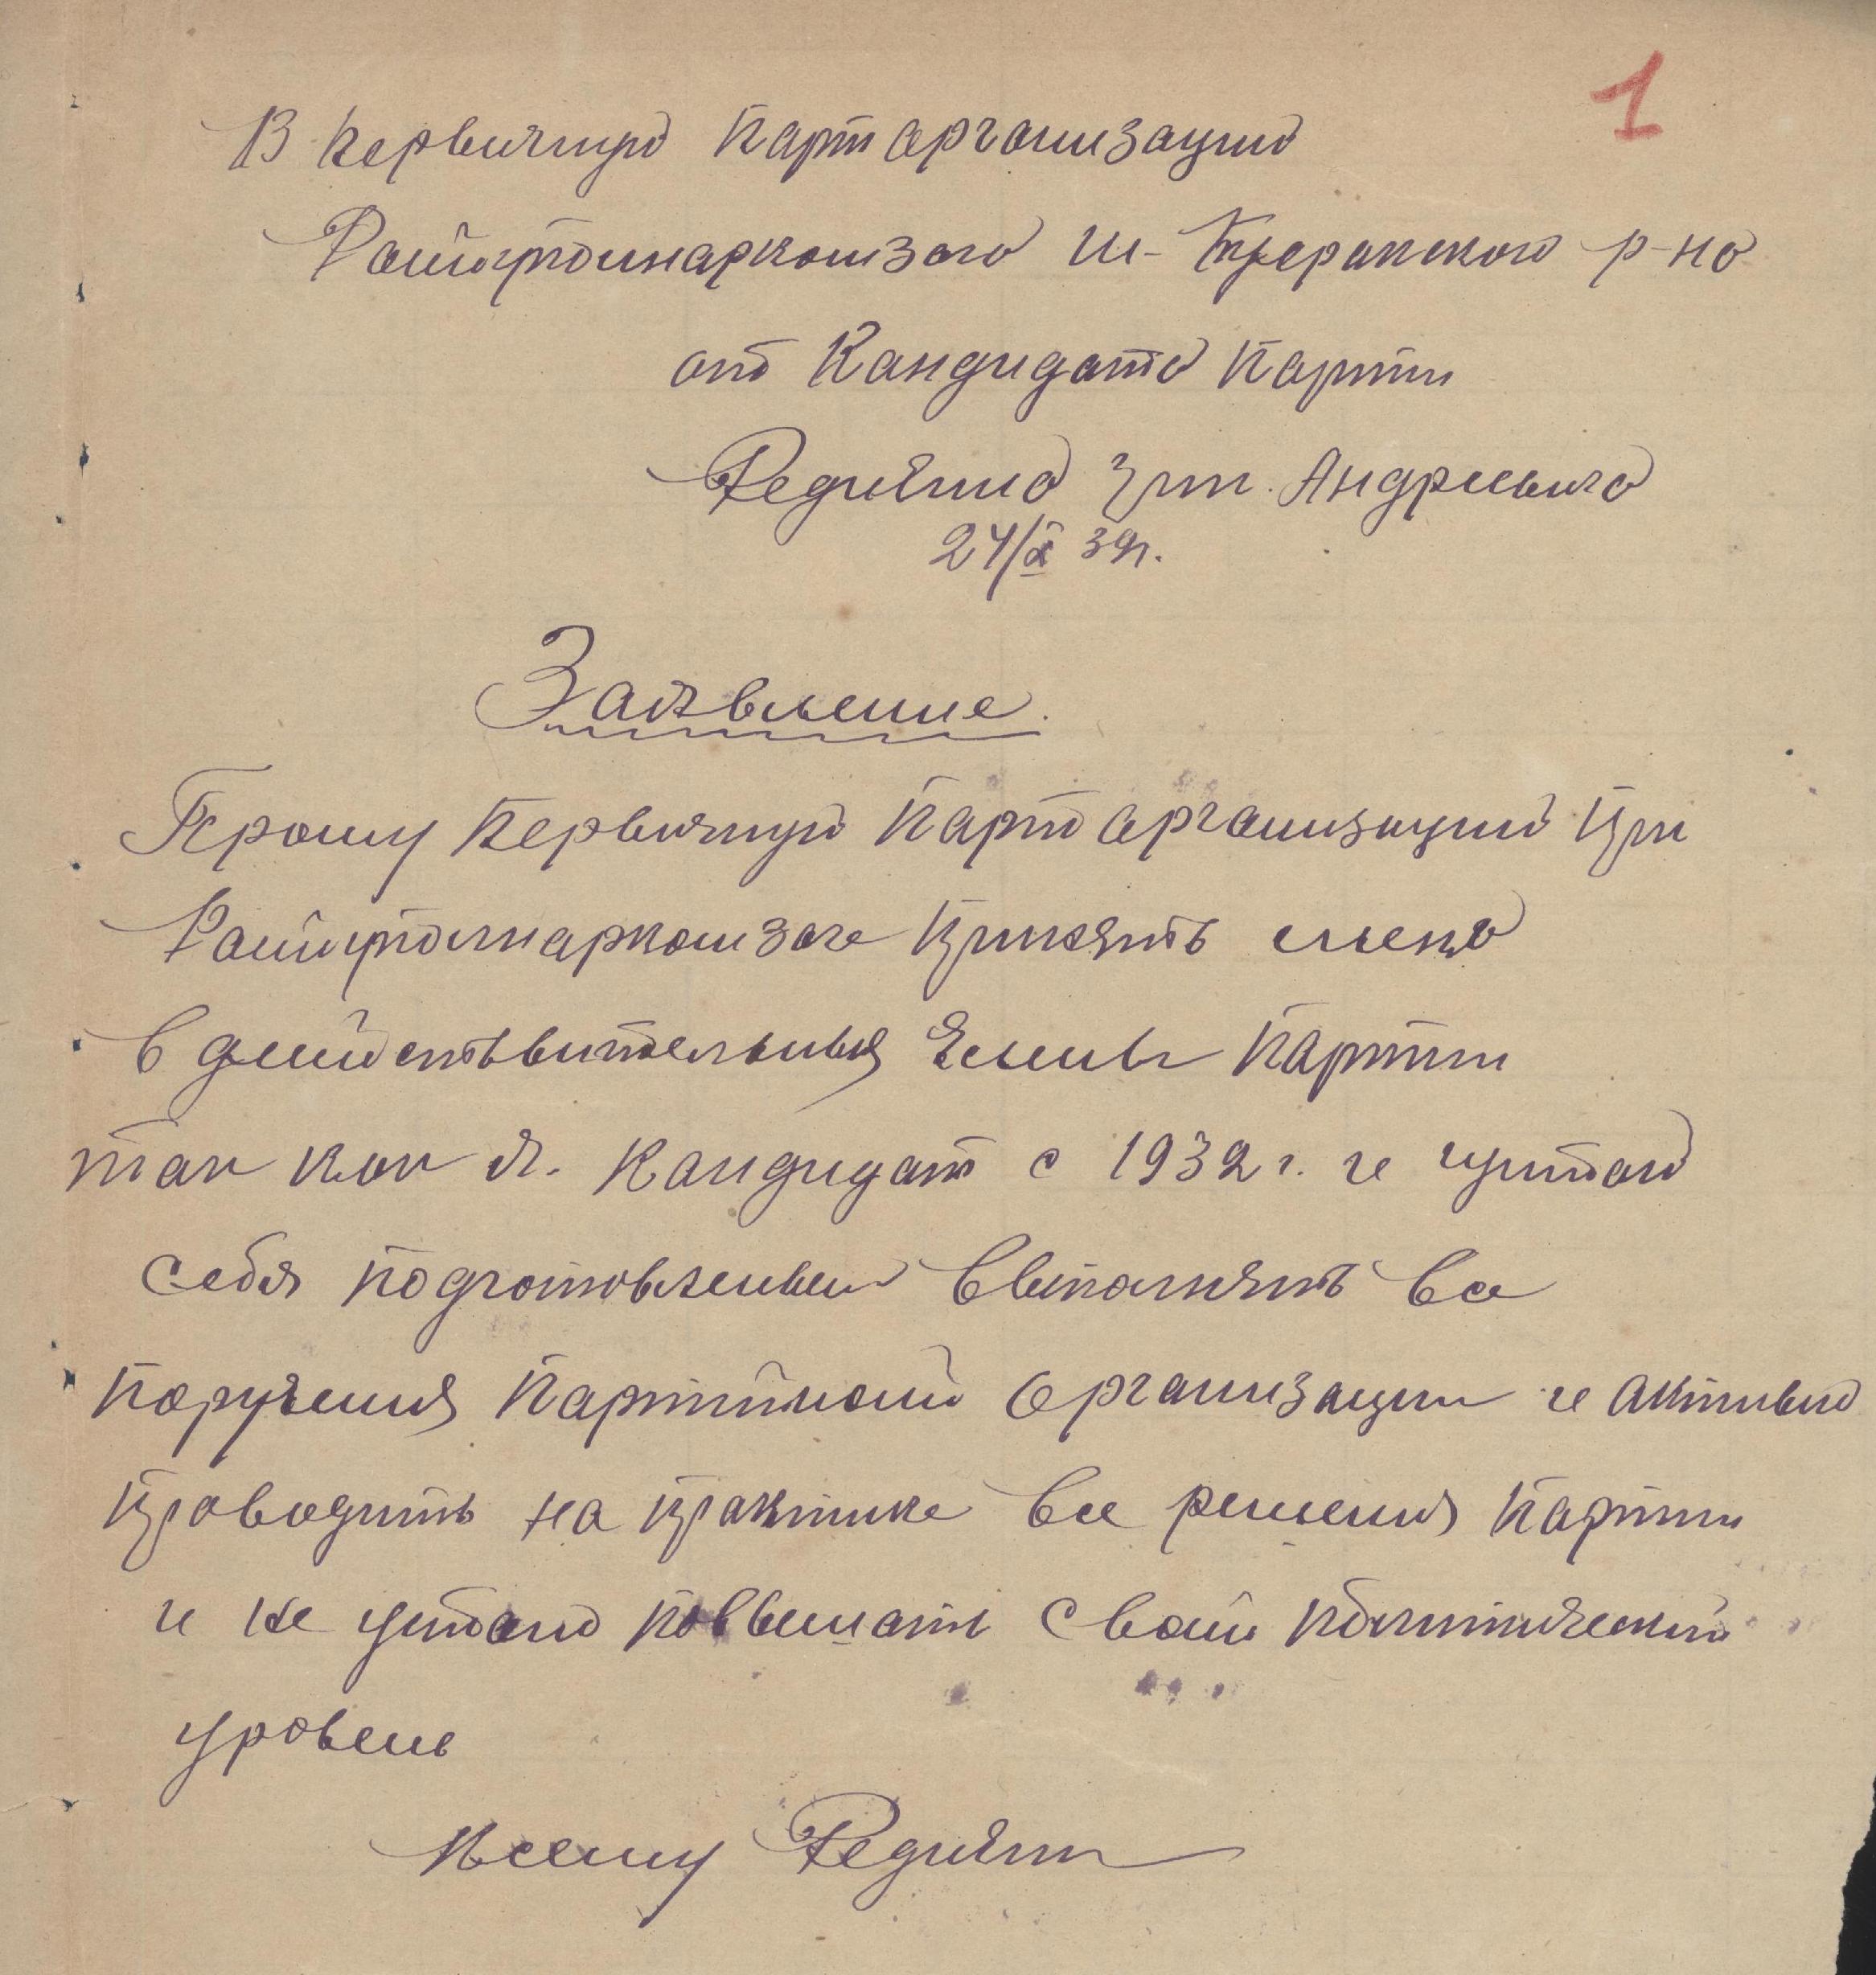 1
В первичную Парт организацию
Райуполнаркомзаго Ш- р-на
от Кандидата Партии
Андреевича
24/X 39г.
Заявление.
Прошу первичную Парт организацию при
Райуполнаркомзаге принять мена
в дейиствительныя Члены Партии
так как я. Кандидат с 1932 г. и щитаю
себя подготовленым выполнять все
поручения Партийной организации и активно
проводить на практике все решения Партии
и не устано поввышать свой политический
уровень